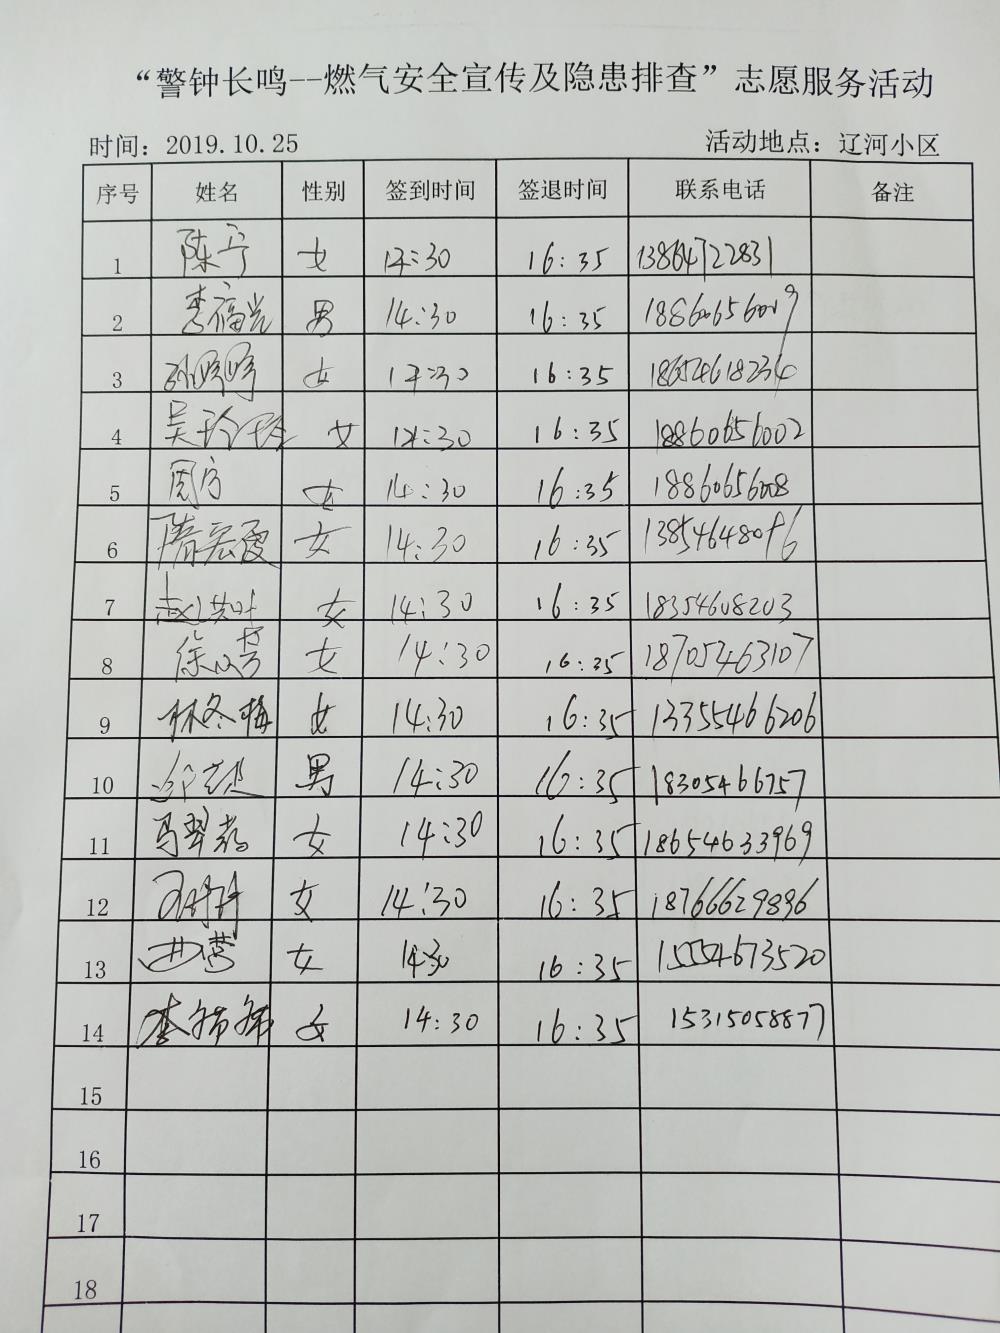 “警钟长鸣--燃气安全宣传及隐患排查”志愿服务活动
时间：2019.10.25 活动地点：辽河小区
序号 姓名 性别 签到时间 签退时间 联系电话 备注
1 陈宁 女 14:30 16:35 13864722831
2 李福光 男 14:30 16:35 18860656009
3 孙婷婷 女 14:30 16:35 18654618234
4 吴玲玲 女 14:30 16:35 18860656002
5 周方 女 14:30 16:35 18860656008
6 隋宏霞 女 14:30 16:35 13854648096
7 女 14:30 16:35 18354608203
8 女 14:30 16:35 18705463107
9 林冬梅 女 14:30 16:35 13355466206
10 男 14:30 16:35 18305466757
11 女 14:30 16:35 18654633969
12 女 14:30 16:35 18766629896
13 女 14:30 16:35 15554673520
14 女 14:30 16:35 15315058877
15
16
17
18